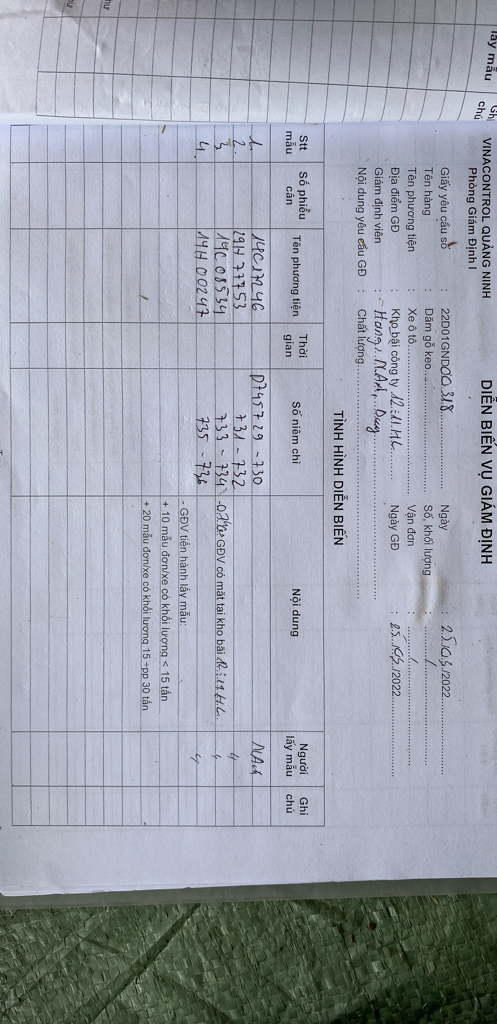 lấy mẫu
Ghi chú
VINACONTROL QUẢNG NINH
Phòng Giám Định I
DIỄN BIẾN VỤ GIÁM ĐỊNH
Giấy yêu cầu số : 22D01GND00318 Ngày : 25/03/2022
Tên hàng : Dăm gỗ keo Số, khối lượng : /
Tên phương tiện : Xe ô tô Vận đơn : /
Địa điểm GĐ : Kho bãi công ty Ngày GĐ : 25/03/2022
Giám định viên :
Nội dung yêu cầu GĐ : Chất lượng
TÌNH HÌNH DIỄN BIẾN
Stt mẫu Số phiếu cân Tên phương tiện Thời gian Số niêm chì Nội dung Người lấy mẫu Ghi chú
1. 14C17246 D745729 - 730
2. 29H77753 731 - 732
3 14C08534 733 - 734 GĐV có mặt tại kho bãi
4. 14H00247 735 - 736
- GĐV tiến hành lấy mẫu:
+ 10 mẫu đơn/xe có khối lượng < 15 tấn
+ 20 mẫu đơn/xe có khối lượng 15 ÷pp 30 tấn